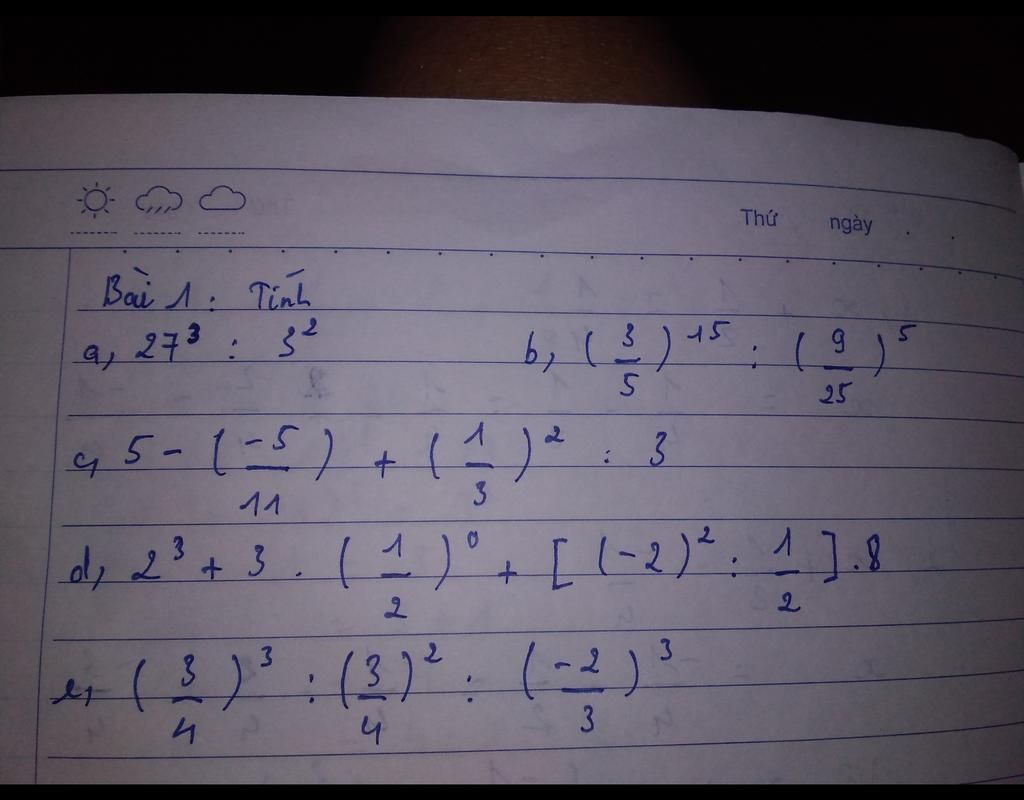 Thứ ngày
Bài 1 : Tính
a, 27³ : 3² b, (3/5)¹⁵ : (9/25)⁵
c, 5 - (-5/11) + (1/3)² : 3
d, 2³ + 3 . (1/2)⁰ + [(-2)² : 1/2] . 8
e, (3/4)³ : (3/4)² : (-2/3)³